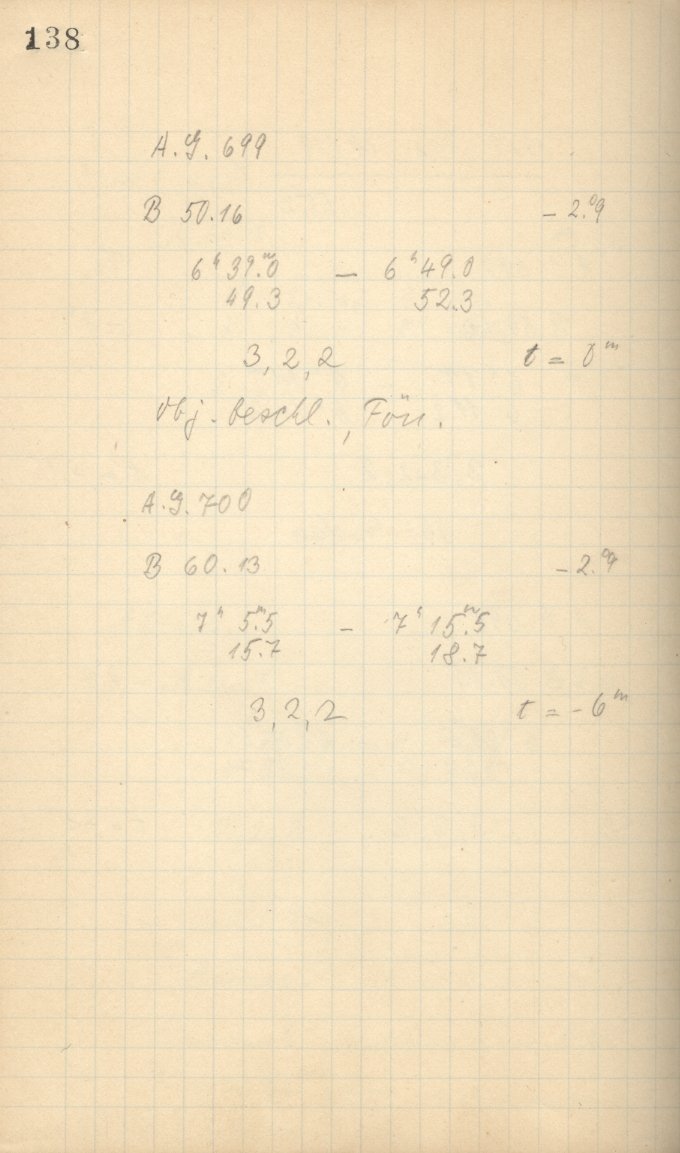 138
A.G. 699
B 50.16 -2.°9
6ʰ 39.ᵐ0 — 6ʰ 49.0
49.3 52.3
3, 2, 2 t = 0ᵐ
Obj. beschl., Fön.
A.G. 700
B 60.13 -2.°9
7ʰ 5.ᵐ5 — 7ʰ 15.ᵐ5
15.7 18.7
3, 2, 2 t = -6ᵐ